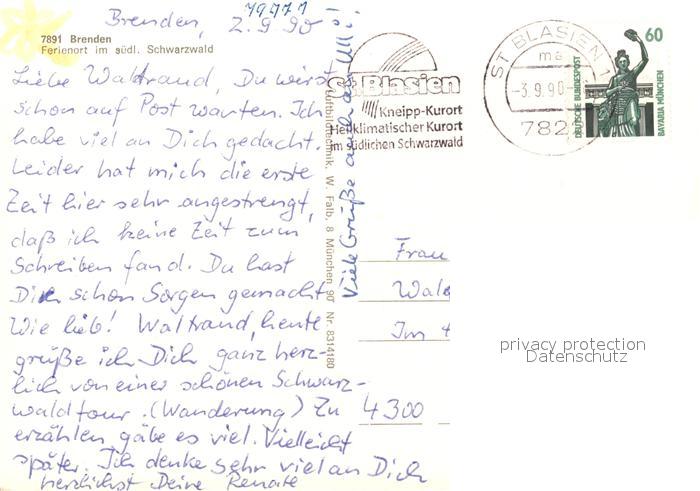 79777
Brenden, 2.9.90
7891 Brenden
Ferienort im südl. Schwarzwald
Liebe Waltrand, Du wirst
schon auf Post warten. Ich
habe viel an Dich gedacht.
Leider hat mich die erste
Zeit hier sehr angestrengt,
daß ich keine Zeit zum
Schreiben fand. Du hast
Dich schon Sorgen gemacht
Wie lieb! Waltrand, heute
grüße ich Dich ganz herz-
lich von einer schönen Schwarz-
waldtour. (Wanderung) Zu
erzählen gäbe es viel. Vielleicht
später. Ich denke sehr viel an Dich
herzlichst Deine Renate
Viele Grüße auch an
Luftbildtechnik, W. Falb, 8 München 90 Nr. 8314180
St. Blasien
Kneipp-Kurort
Heilklimatischer Kurort
im südlichen Schwarzwald
ST BLASIEN 1
ma
-3.9.90-
782
60
DEUTSCHE BUNDESPOST
BAVARIA MÜNCHEN
Frau
Im
4300
privacy protection
Datenschutz